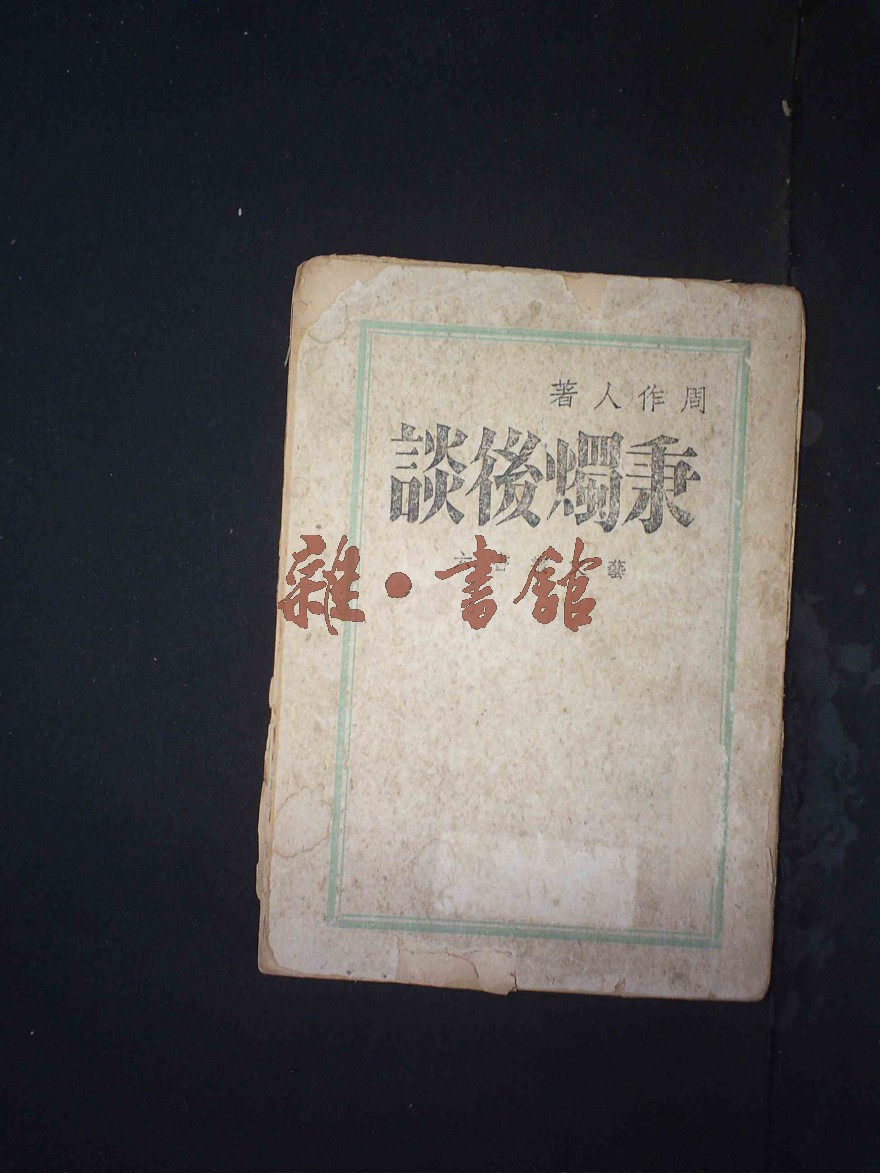 周作人著
秉燭後談
藝
雜·書館